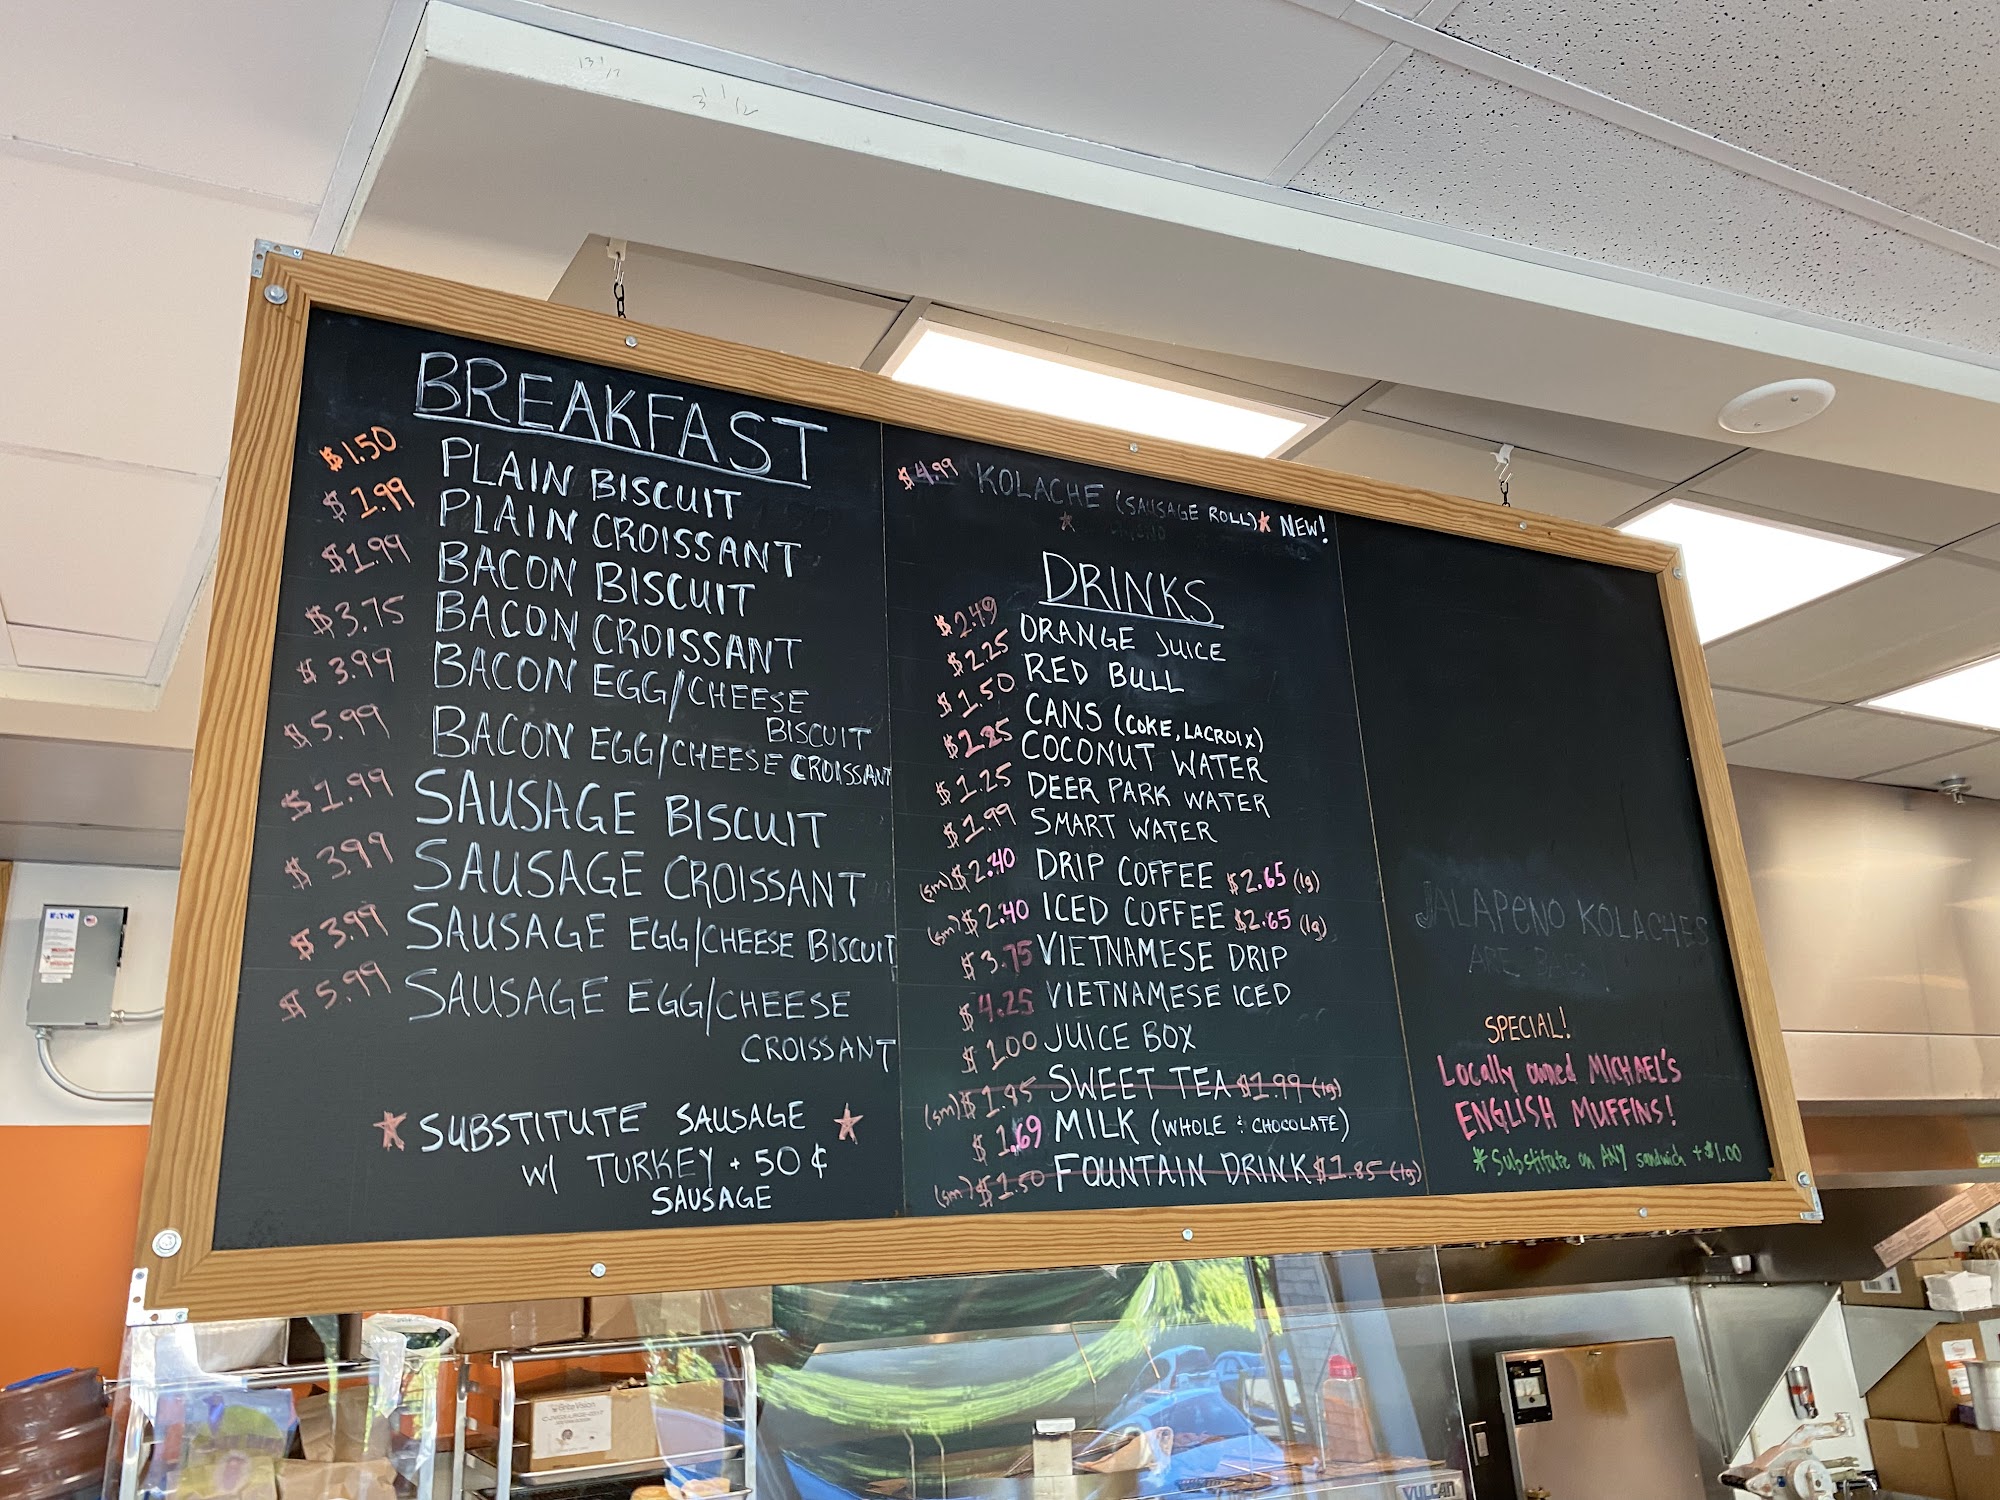 BREAKFAST
$1.50 PLAIN BISCUIT
$1.99 PLAIN CROISSANT
$1.99 BACON BISCUIT
$3.75 BACON CROISSANT
$3.99 BACON EGG/CHEESE
BISCUIT
$5.99 BACON EGG/CHEESE CROISSANT
$1.99 SAUSAGE BISCUIT
$3.99 SAUSAGE CROISSANT
$3.99 SAUSAGE EGG/CHEESE BISCUIT
$5.99 SAUSAGE EGG/CHEESE
CROISSANT
* SUBSTITUTE SAUSAGE *
W/ TURKEY + 50 ¢
SAUSAGE
$4.99 KOLACHE (SAUSAGE ROLL)* NEW!
*
DRINKS
$2.49 ORANGE JUICE
$2.25 RED BULL
$1.50 CANS (COKE, LACROIX)
$2.25 COCONUT WATER
$1.25 DEER PARK WATER
$1.99 SMART WATER
(sm) $2.40 DRIP COFFEE $2.65 (lg)
(sm) $2.40 ICED COFFEE $2.65 (lg)
$3.75 VIETNAMESE DRIP
$4.25 VIETNAMESE ICED
$1.00 JUICE BOX
(sm) $1.85 SWEET TEA $1.99 (lg)
$1.69 MILK (WHOLE & CHOCOLATE)
(sm) $1.50 FOUNTAIN DRINK $1.85 (lg)
JALAPENO KOLACHES
ARE
SPECIAL!
Locally owned MICHAEL'S
ENGLISH MUFFINS!
*Substitute on ANY sandwich +$1.00
EATON
VULCAN